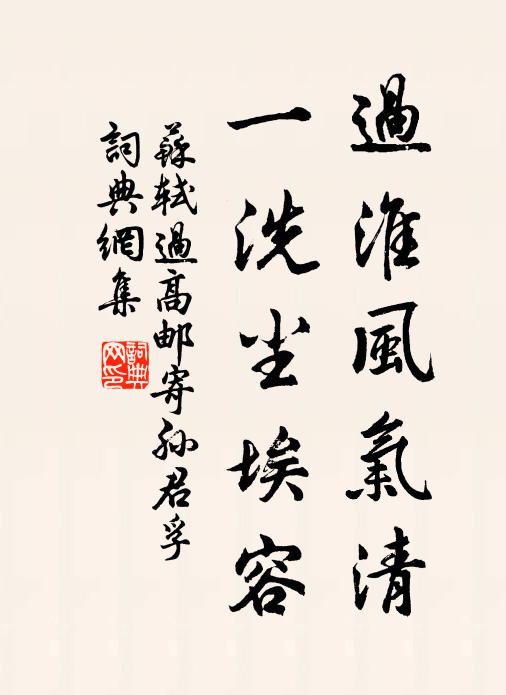 過淮風氣清
一洗尘埃容
蘇軾過高邮寄孙君孚
詞典網集
詞典网印